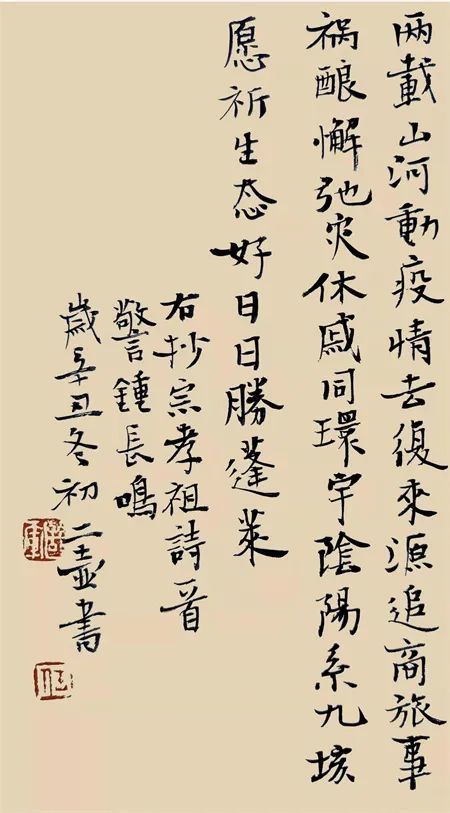 兩載山河動疫情去復來源追商旅事
祸酿懈弛灾休戚同環宇陰陽系九垓
愿祈生态好日日勝蓬萊
右抄宗孝祖詩一首
警鍾長鳴
歲辛丑冬初二壶書